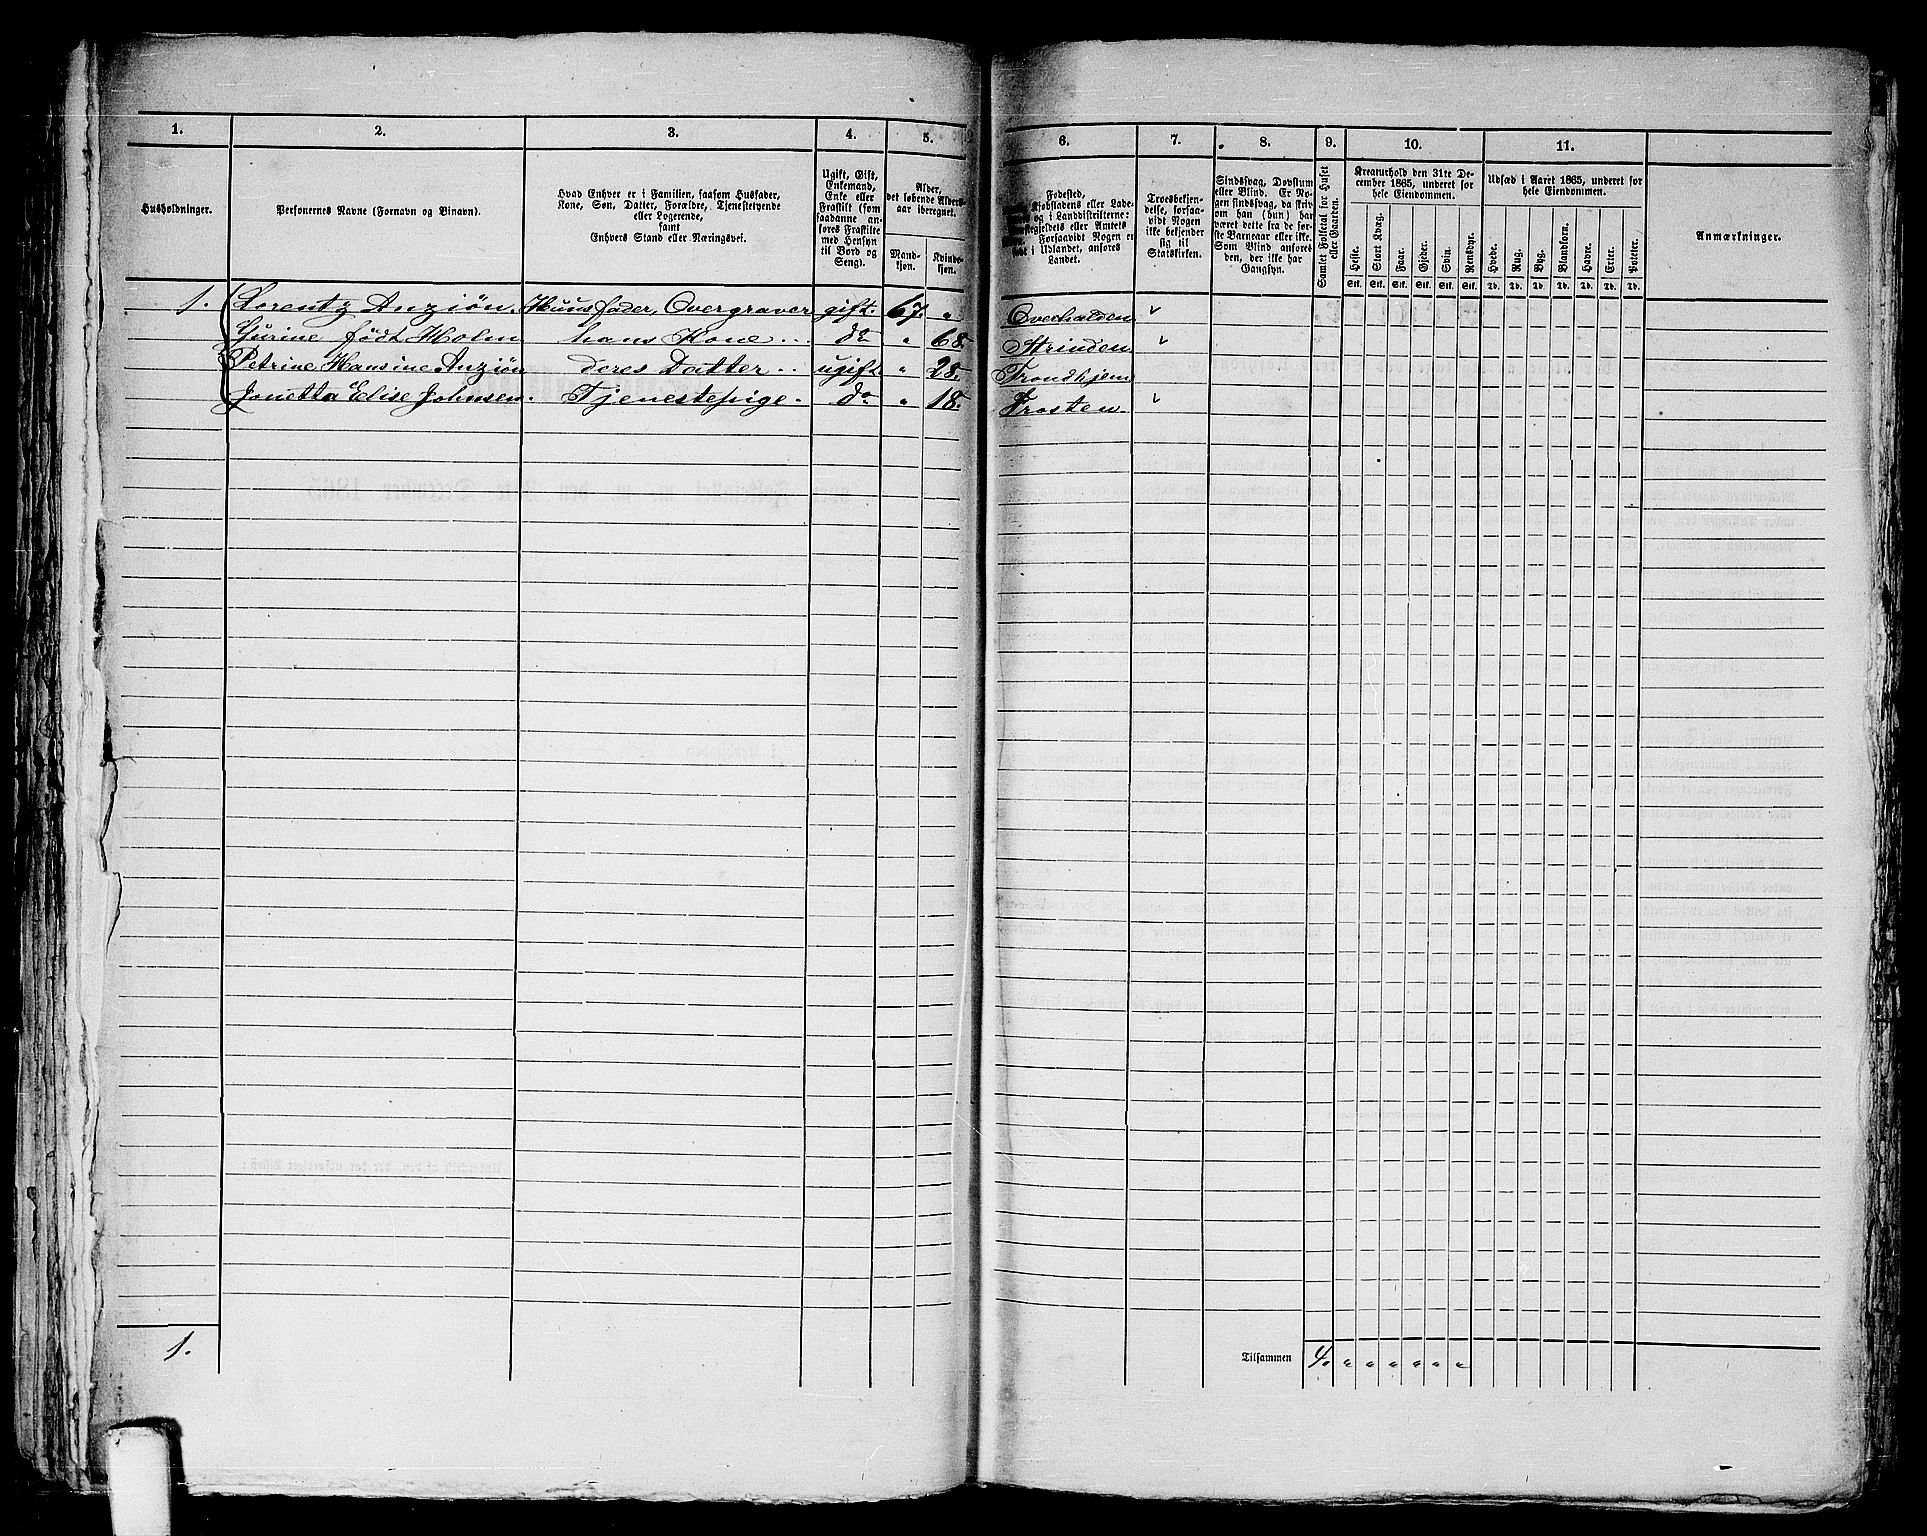 1. 2. 3. 4. 5. 6. 7. 8. 9. 10. 11.
Husholdninger.
Personernes Navne (Fornavn og Binavn).
Hvad Enhver er i Familien, saasom Husfader,
Kone, Søn, Datter, Forældre, Tjenestetyende
eller Logerende,
samt
Enhvers Stand eller Næringsvei.
Ugift, Gift,
Enkemand,
Enke eller
Fraskilt (som
saadanne an-
føres Fraskilte
med Hensyn
til Bord og
Seng).
Alder,
det løbende Alders-
aar iberegnet.
Mand-
kjøn.
Kvinde-
kjøn.
Fødested,
Kjøbstadens eller Lade-
og i Landdistrikterne:
estegjeldets eller Amtets
Forsaavidt Nogen er
i Udlandet, anføres
Landet.
Troesbekjen-
delse, forsaa-
vidt Nogen
ikke bekjender
sig til
Statskirken.
Sindssvag, Døvstum
eller Blind. Er No-
gen sindssvag, da skriv
om han (hun) har
været dette fra de før-
ste Barneaar eller ikke.
Som Blind anføres
den, der ikke har
Gangsyn.
Samlet Folketal for Huset
eller Gaarden.
Kreaturhold den 31te De-
cember 1865, underet for
hele Eiendommen.
Heste. Stort Kvæg. Faar. Gjeder. Svin. Rensdyr.
Stk. Stk. Stk. Stk. Stk. Stk.
Udsæd i Aaret 1865, underet for
hele Eiendommen.
Hvede. Rug. Byg. Blandkorn. Havre. Erter. Poteter.
Td. Td. Td. Td. Td. Td. Td.
Anmærkninger.
1. Lorentz Anziön. Huusfader, Overgraver gift. 67. " Overhalden
Gurine født Holm hans Kone do " 68. Strinden
Petrine Hansine Anziön deres Datter ugift " 28. Trondhjem
Jonetta Elise Johnsen. Tjenestepige. do " 18. Frosten
1.
Tilsammen 4. " " " " " "